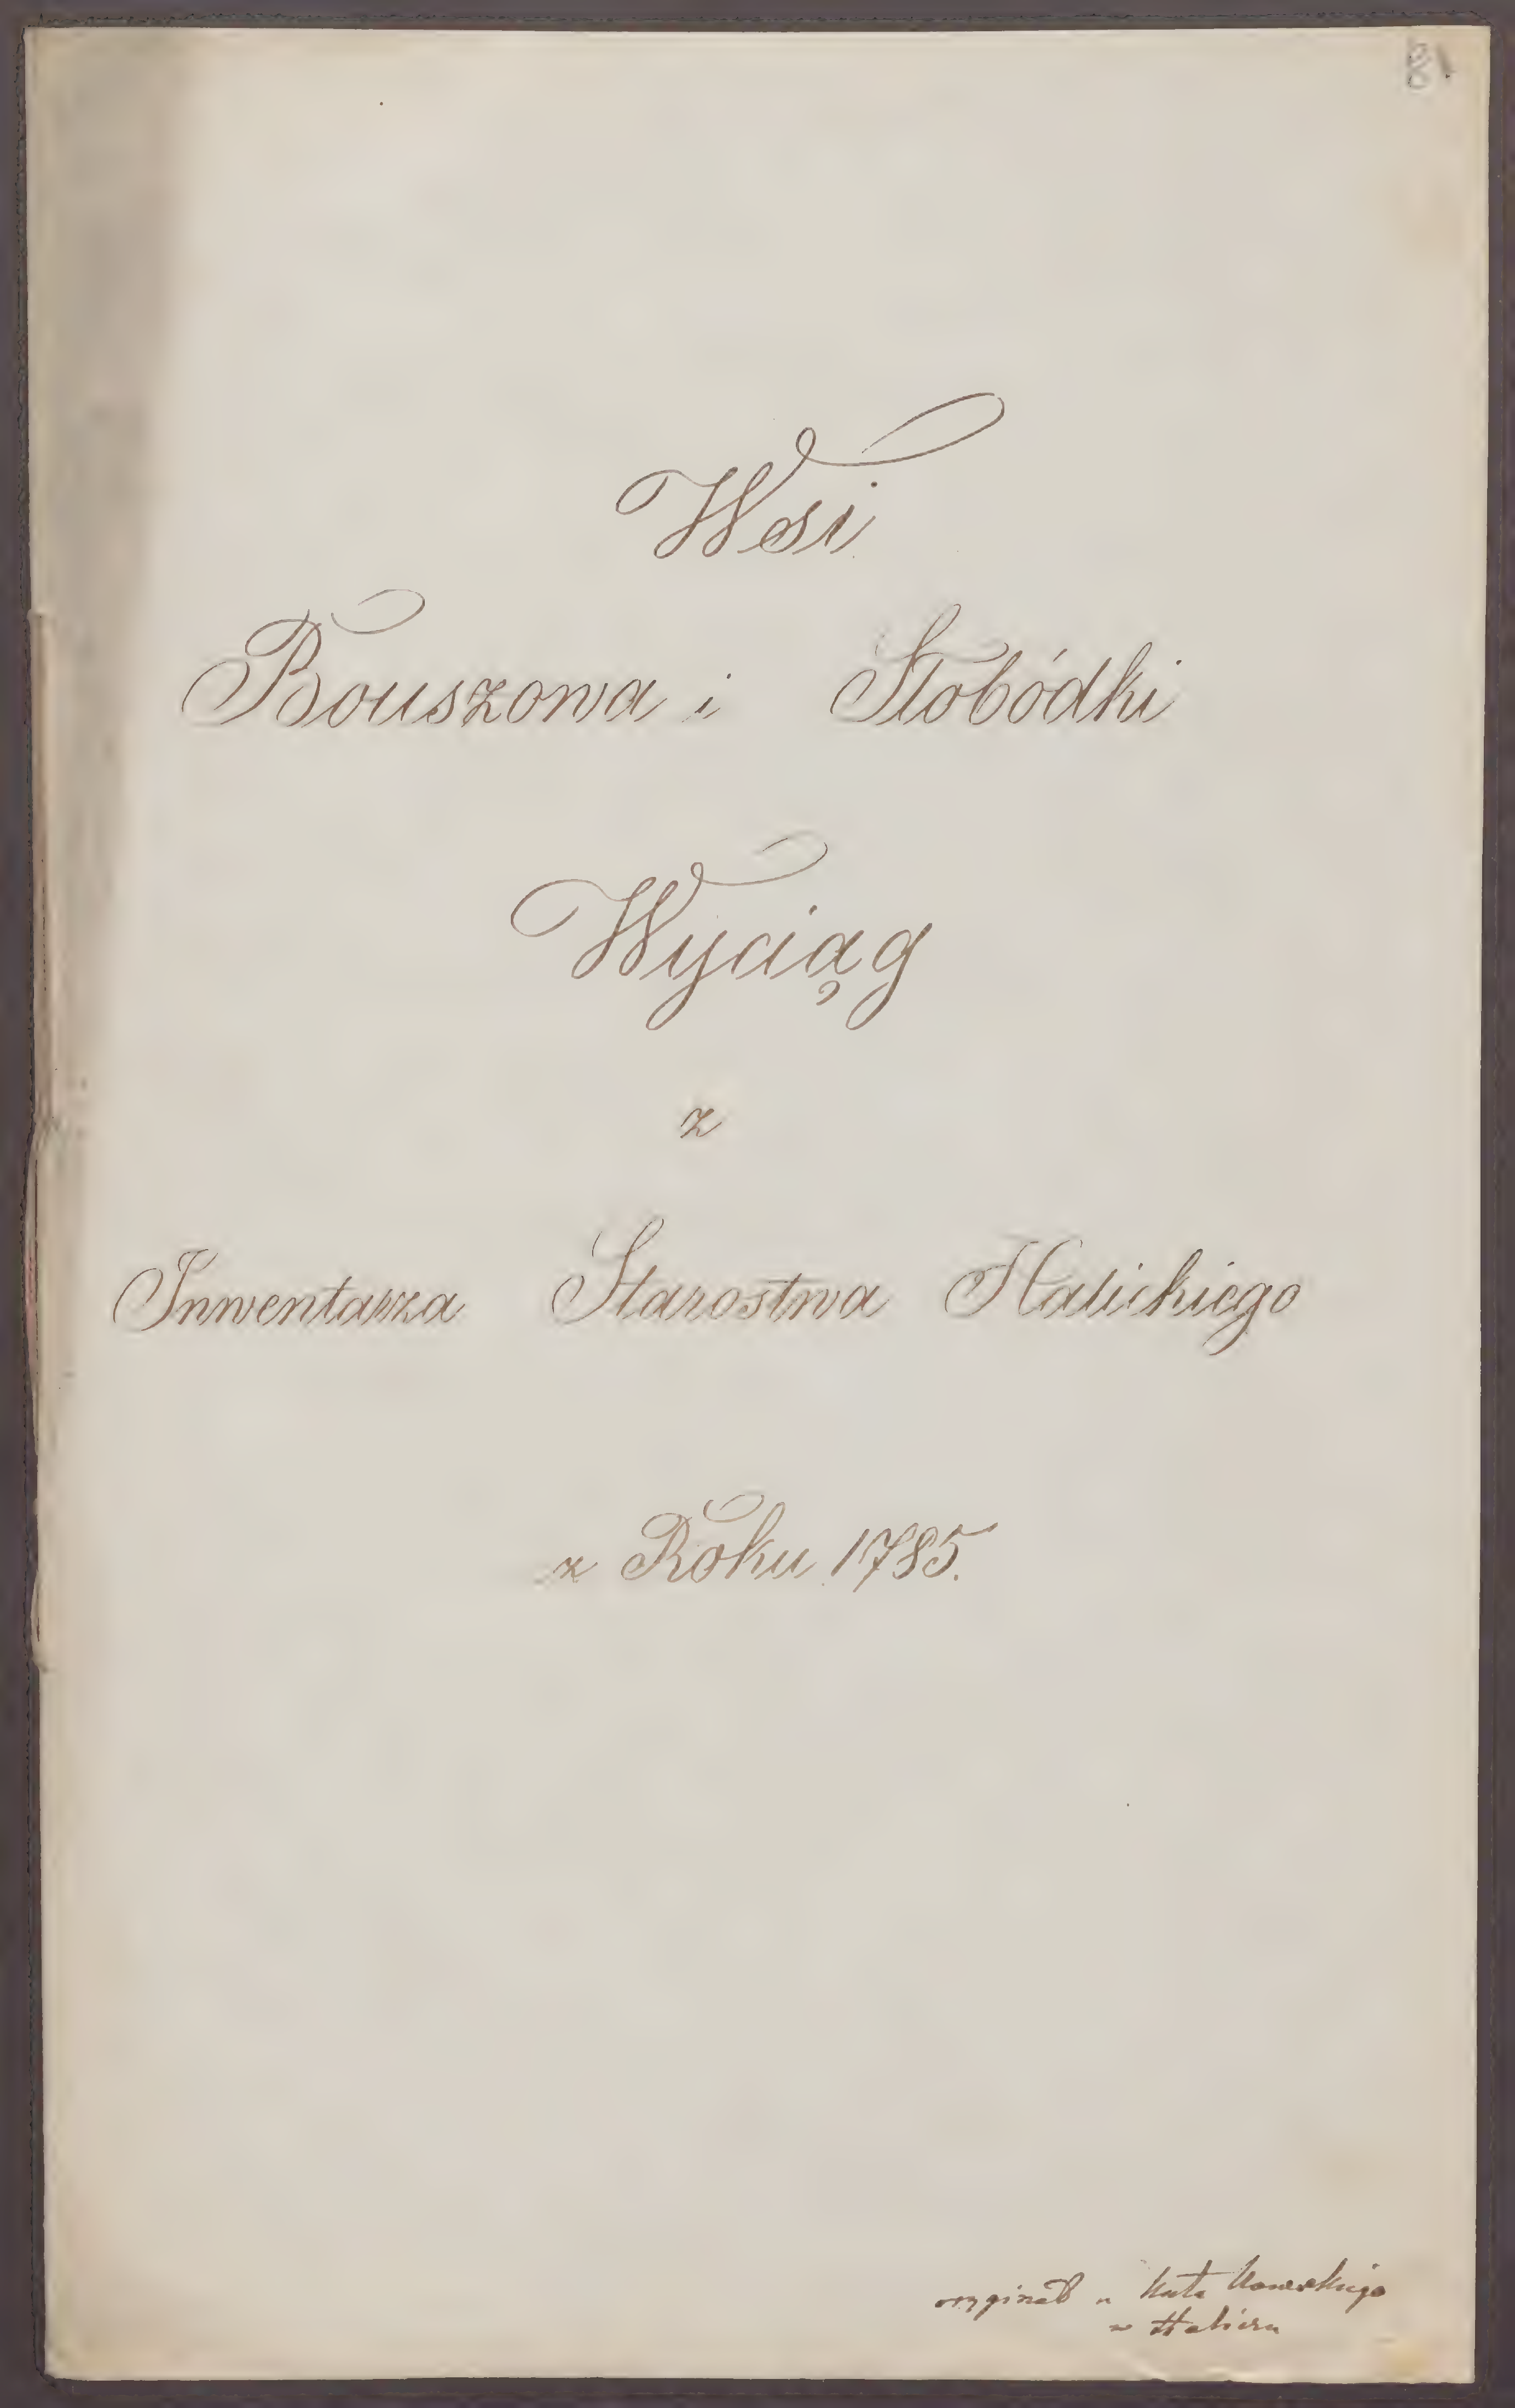 81
Wsi
Bouszowa i Słobódki
Wyciąg
z
Inwentarza Starostwa Halickiego
z Roku 1785.
oryginał u
w Haliczu